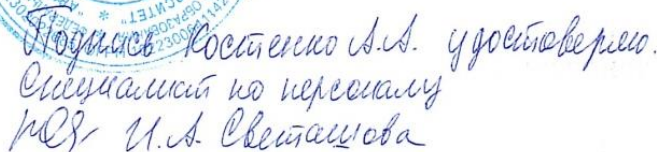 Подпись Костенко А.А. удостоверяю.
Специалист по персоналу
И.А. Светашова